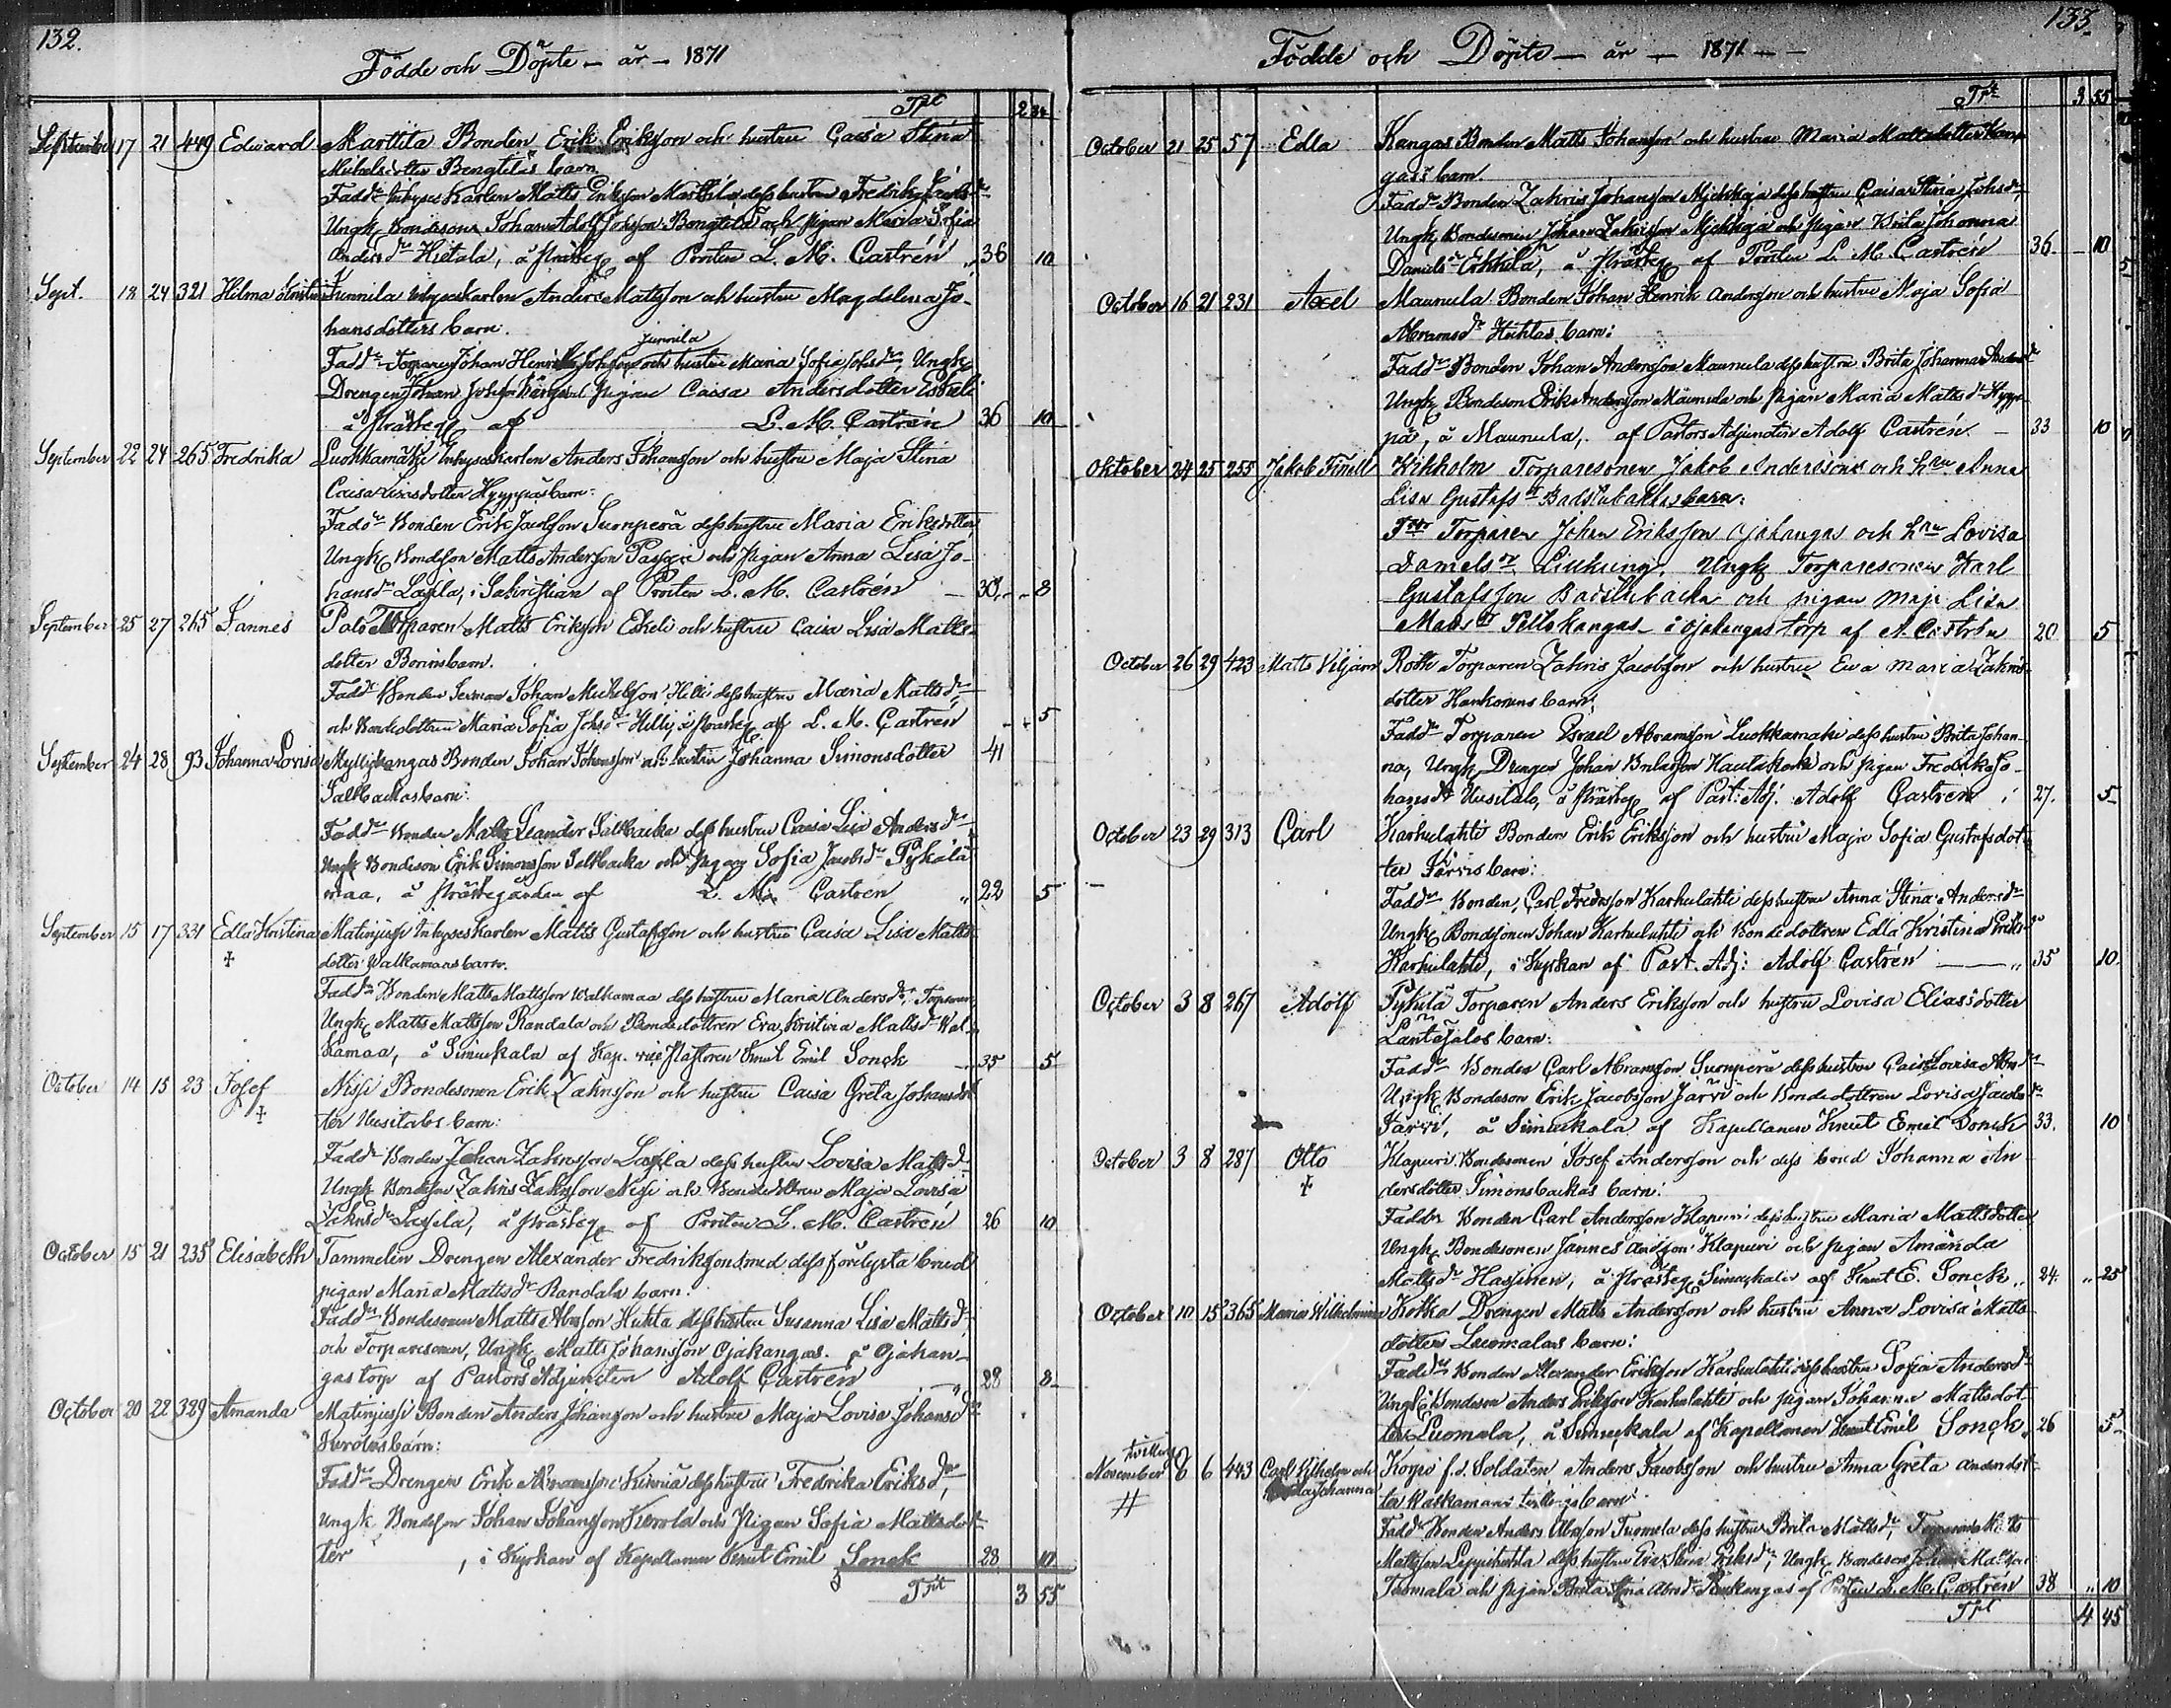 132.
Födde och Döpte — år — 1871
Tpt 2 34
September 17 21 449 Edward Marttila Bonden Erik Erikson och hustru Caisa Stina
Michelsdotter Bengtiläs barn
Faddr Inhyses Karlen Matts Erikson Marttila dess hustru Fredrika
Ungk. Bondesonen Johan Adolf Bengtilä och pigan Maria Sofia
Andersdr Hietala, å Prästeg af Prosten L. M. Castrén „ 36 10
Sept. 18 24 321 Hilma Kristina Junnila Inhyseskarlen Anders Mattsson och hustru Magdelena Jo-
hansdotters barn.
Junnila
Faddr Torparen Johan Henrik och hustru Maria Sofia Johsdr, Ungk
Drengen Johan pigan Caisa Andersdotter Eskeli
å Prästeg af L. M. Castrén 36 10
September 22 24 265 Fredrika Luokkamäki Inhyseskarlen Anders Johansson och hustru Maja Stina
Caisa Lisasdotter Hyyppäs barn:
Faddr Bonden Erik Jacobsson Suonperä dess hustru Maria Eriksdotter
Ungk Bondeson Matts Andersson och pigan Anna Lisa Jo-
hansdr Lassila, i Sakristian af Prosten L. M. Castrén — 30. 8
September 25 27 265 Jannes Palo Torparen Matts Erikson Eskeli och hustru Caisa Lisa Matts-
dotter barn.
Faddr Bonden Johan Michelson Helli dess hustru Maria Mattsdr
och Bondedottren Maria Sofia Johsdr Helli, å Prästeg af L. M. Castrén 5
September 24 28 93 Johanna Lovisa Myllykangas Bonden Johan Johansson och hustru Johanna Simonsdotter 41
Salbackas barn:
Faddr Bonden Matts Leander Salbacka dess hustru Caisa Lisa Andersdr
Ungk Bondeson Erik Simonsson Salbacka och pigan Sofia Jacobsdr Pykälä
maa, å Prästegården af L. M. Castrén „ 22 5
September 15 17 331 Edla Kristina Matinjussi Inhyseskarlen Matts Gustafsson och hustru Caisa Lisa Matts-
‡ dotter Walkamans barn.
Faddr Bonden Matts Mattsson Walkamaa dess hustru Maria Andersdr,
Ungk Matts Mattsson Randala och Bondedottren Eva Kristina Mattsdr Wal-
kamaa, å Simuskala af Kap. Knut Emil Sonck 35 5
October 14 15 23 Josef Nissi Bondesonen Erik Zakrisson och hustru Caisa Greta Johansdot
‡ ter Uusitalos barn:
Faddr Bonden Johan Zakrisson Lassila dess hustru Lovisa Mattsdr
Ungk Bondeson Zakris Zakrisson Nissi och Bondedottren Maja Lovisa
Zakrisdr Lassila, å Prästeg af Prosten L. M. Castrén 26 10
October 15 21 235 Elisabeth Tammelin Drengen Alexander Fredrikson med dess förelysta brud
pigan Maria Mattsdr Randala barn:
Faddr Bondesonen Matts Abrsson Huhta dess hustru Susanna Lisa Mattsdr,
och Torparesonen, Ungk. Matts Johansson Ojakangas. å Ojakan-
gas torp af Pastors Adjuncten Adolf Castrén 28 8
October 20 22 389 Amanda Matinjussi Bonden Anders Johansson och hustru Maja Lovisa Johansdr
Kerolas barn:
Faddr Drengen Erik Abramsson dess hustru Fredrika Eriksdr,
Ungk Bondeson Johan Johansson Kerola och Pigan Sofia Mattsdot-
ter , i Kyrkan af Kapellanen Knut Emil Sonck 28 10
Tpt 3 55
133.
Födde och Döpte — år — 1871 — —
Tpt 3 55
October 21 25 57 Edla Kangas Bonden Matts Johansson och hustru Maria Mattsdotter Kan-
gas's barn.
Faddr Bonden Zakris Johanson dess hustru Caisa Stina Johsdr,
Ungk Bondesonen Johan Zakrisson och pigan Brita Johanna
Danielsdr Erkkilä, å Prästeg af Prosten L. M. Castrén 36 10
October 16 21 231 Axel Maunula Bonden Johan Henrik Andersson och hustru Maja Sofia
Abramsdr Huhtas barn:
Faddr Bonden Johan Andersson Maunula dess hustru Brita Johanna Andersdr
Ungk Bondeson Erik Andersson Maunula och pigan Maria Mattsdr Hyyp-
pä, å Maunula, af Pastors Adjuncten Adolf Castrén — 33 10
Oktober 24 25 255 Jakob Finell Wikholm Torparesonen Jakob Andersson och hru Anna
Lisa Gustafsdr Badstubackas barn:
Fddr Torparen Johan Eriksson Ojakangas och hru Lovisa
Danielsdr Liukring. Ungk Torparesonen Karl
Gustafsson Badstubacka och pigan Maja Lisa
Matsdr Pellokangas — i Ojakangas torp af A. Castrén 20 5
October 26 29 423 Matts Viljam Roth Torparen Zakris Jacobsson och hustru Eva Maria Zakris-
dotter Hankonens barn,
Faddr Torparen Israel Abramsson Luokkamäki dess hustru Brita Johan-
na, Ungk Drengen Johan Hautakoski och pigan Fredrika Jo-
hansdr Uusitalo, å Prästeg af Past. Adj. Adolf Castrén 27. 5
October 23 29 313 Carl Karhulahti Bonden Erik Eriksson och hustru Maja Sofia Gustafsdot
ter Järvis barn:
Faddr Bonden, Carl Fredrsson Karhulahti dess hustru Anna Stina Andersdr
Ungk Bondesonen Johan Karhulahti och Bondedottren Edla Kristina Eriksdr
Karhulahti, i Kyrkan af Past. Adj: Adolf Castrén — „ 35 10.
October 3 8 267 Adolf Pykälä Torparen Anders Eriksson och hustru Lovisa Eliasdotter
Lantäjäs barn:
Faddr Bonden Carl Abramsson Suonperä dess hustru Caisa Lovisa Abrsdr
Ungk Bondeson Erik Jacobsson Järvi och Bondedottren Lovisa Jacobsdr
Järvi, å Simuskala af Kapellanen Knut Emil Sonck 33. 10
October 3 8 287 Otto Klapuri Bondesonen Josef Andersson och dess brud Johanna An-
‡ dersdotter Simonsbackas barn:
Faddr Bonden Carl Andersson Klapuri dess hustru Maria Mattsdotter
Ungk Bondesonen Jannes Andsson Klapuri och pigan Amanda
Mattsdr Hassinen, å Prästeg Simuskala af Knut E. Sonck „ 24. „ 25
October 10 15 365 Maria Wilhelmina Kotka Drengen Matts Andersson och hustru Anna Lovisa Matts-
dotter Luomalas barn:
Faddr Bonden Alexander Eriksson Karhulahti dess hustru Sofia Andersdr
Ungk Bondeson Anders Eriksson Karhulahti och pigan Johanna Mattsdot
ter Luomala, å Simuskala af Kapellanen Knut Emil Sonck 26 5
tvilling
November 6 6 443 Carl Vilhelm och Korpi f.d. Soldaten Anders Jacobsson och hustru Anna Greta Andersdot
# Johanna ter Walkamans tvillingsbarn
Faddr Bonden Anders Abrsson Tuomela dess hustru Brita Mattsdr, Torparen Matts
Mattsson dess hustru Eva Stina Eriksdr, Ungk Bondeson
Tuomala och pigan Brita Stina Abrsdr af Prosten L. M. Castrén 38 „ 10
Tpt 4 45